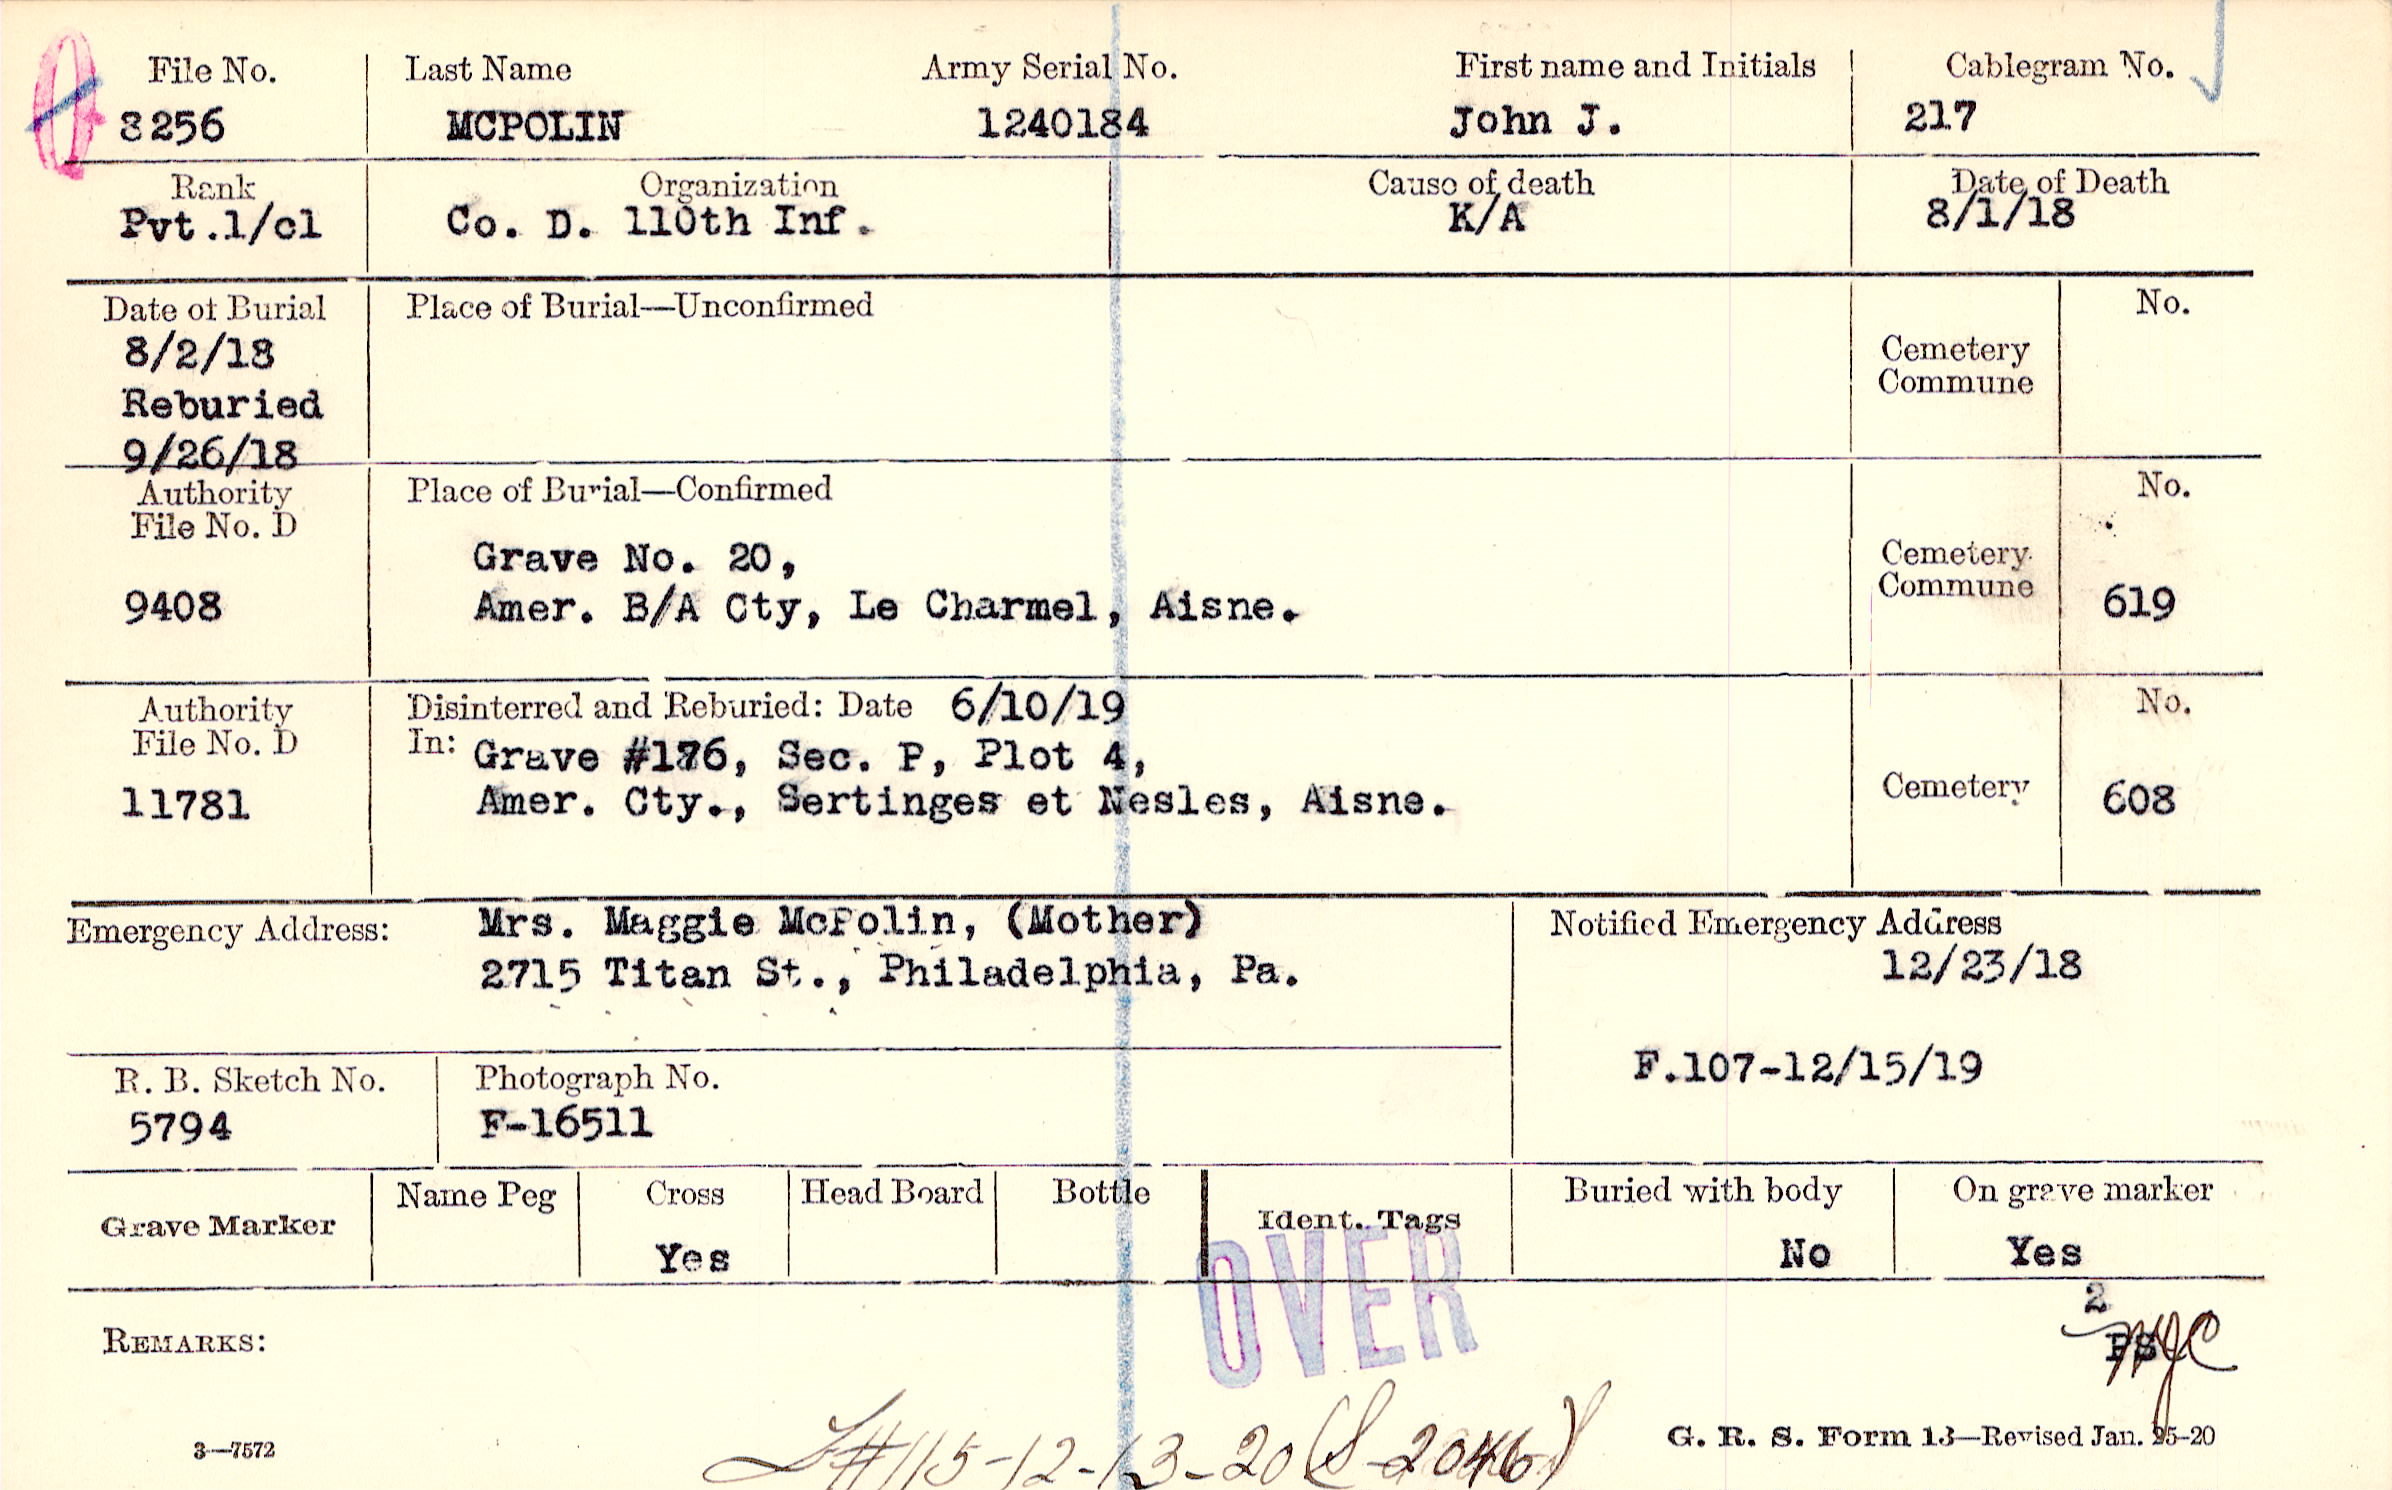 File No. Last Name Army Serial No. First name and Initials Cablegram No.
8256 MCPOLIN 1240184 John J. 217
Rank Organization Cause of death Date of Death
Pvt.1/cl Co. D. 110th Inf. K/A 8/1/18
Date of Burial Place of Burial—Unconfirmed No.
8/2/18
Reburied
9/26/18
Cemetery
Commune
Authority Place of Burial—Confirmed No.
File No. D
Grave No. 20,
9408 Amer. B/A Cty, Le Charmel, Aisne.
Cemetery
Commune 619
Authority Disinterred and Reburied: Date 6/10/19 No.
File No. D In: Grave #176, Sec. P, Plot 4,
11781 Amer. Cty., Sertinges et Nesles, Aisne. Cemetery 608
Emergency Address: Mrs. Maggie McPolin, (Mother)
2715 Titan St., Philadelphia, Pa.
Notified Emergency Address
12/23/18
F.107-12/15/19
R. B. Sketch No. Photograph No.
5794 F-16511
Grave Marker Name Peg Cross Head Board Bottle Ident. Tags Buried with body On grave marker
Yes No Yes
OVER
2
REMARKS:
#115-12-13-20 (S-2046)
3—7572 G. R. S. Form 13—Revised Jan. 25-20